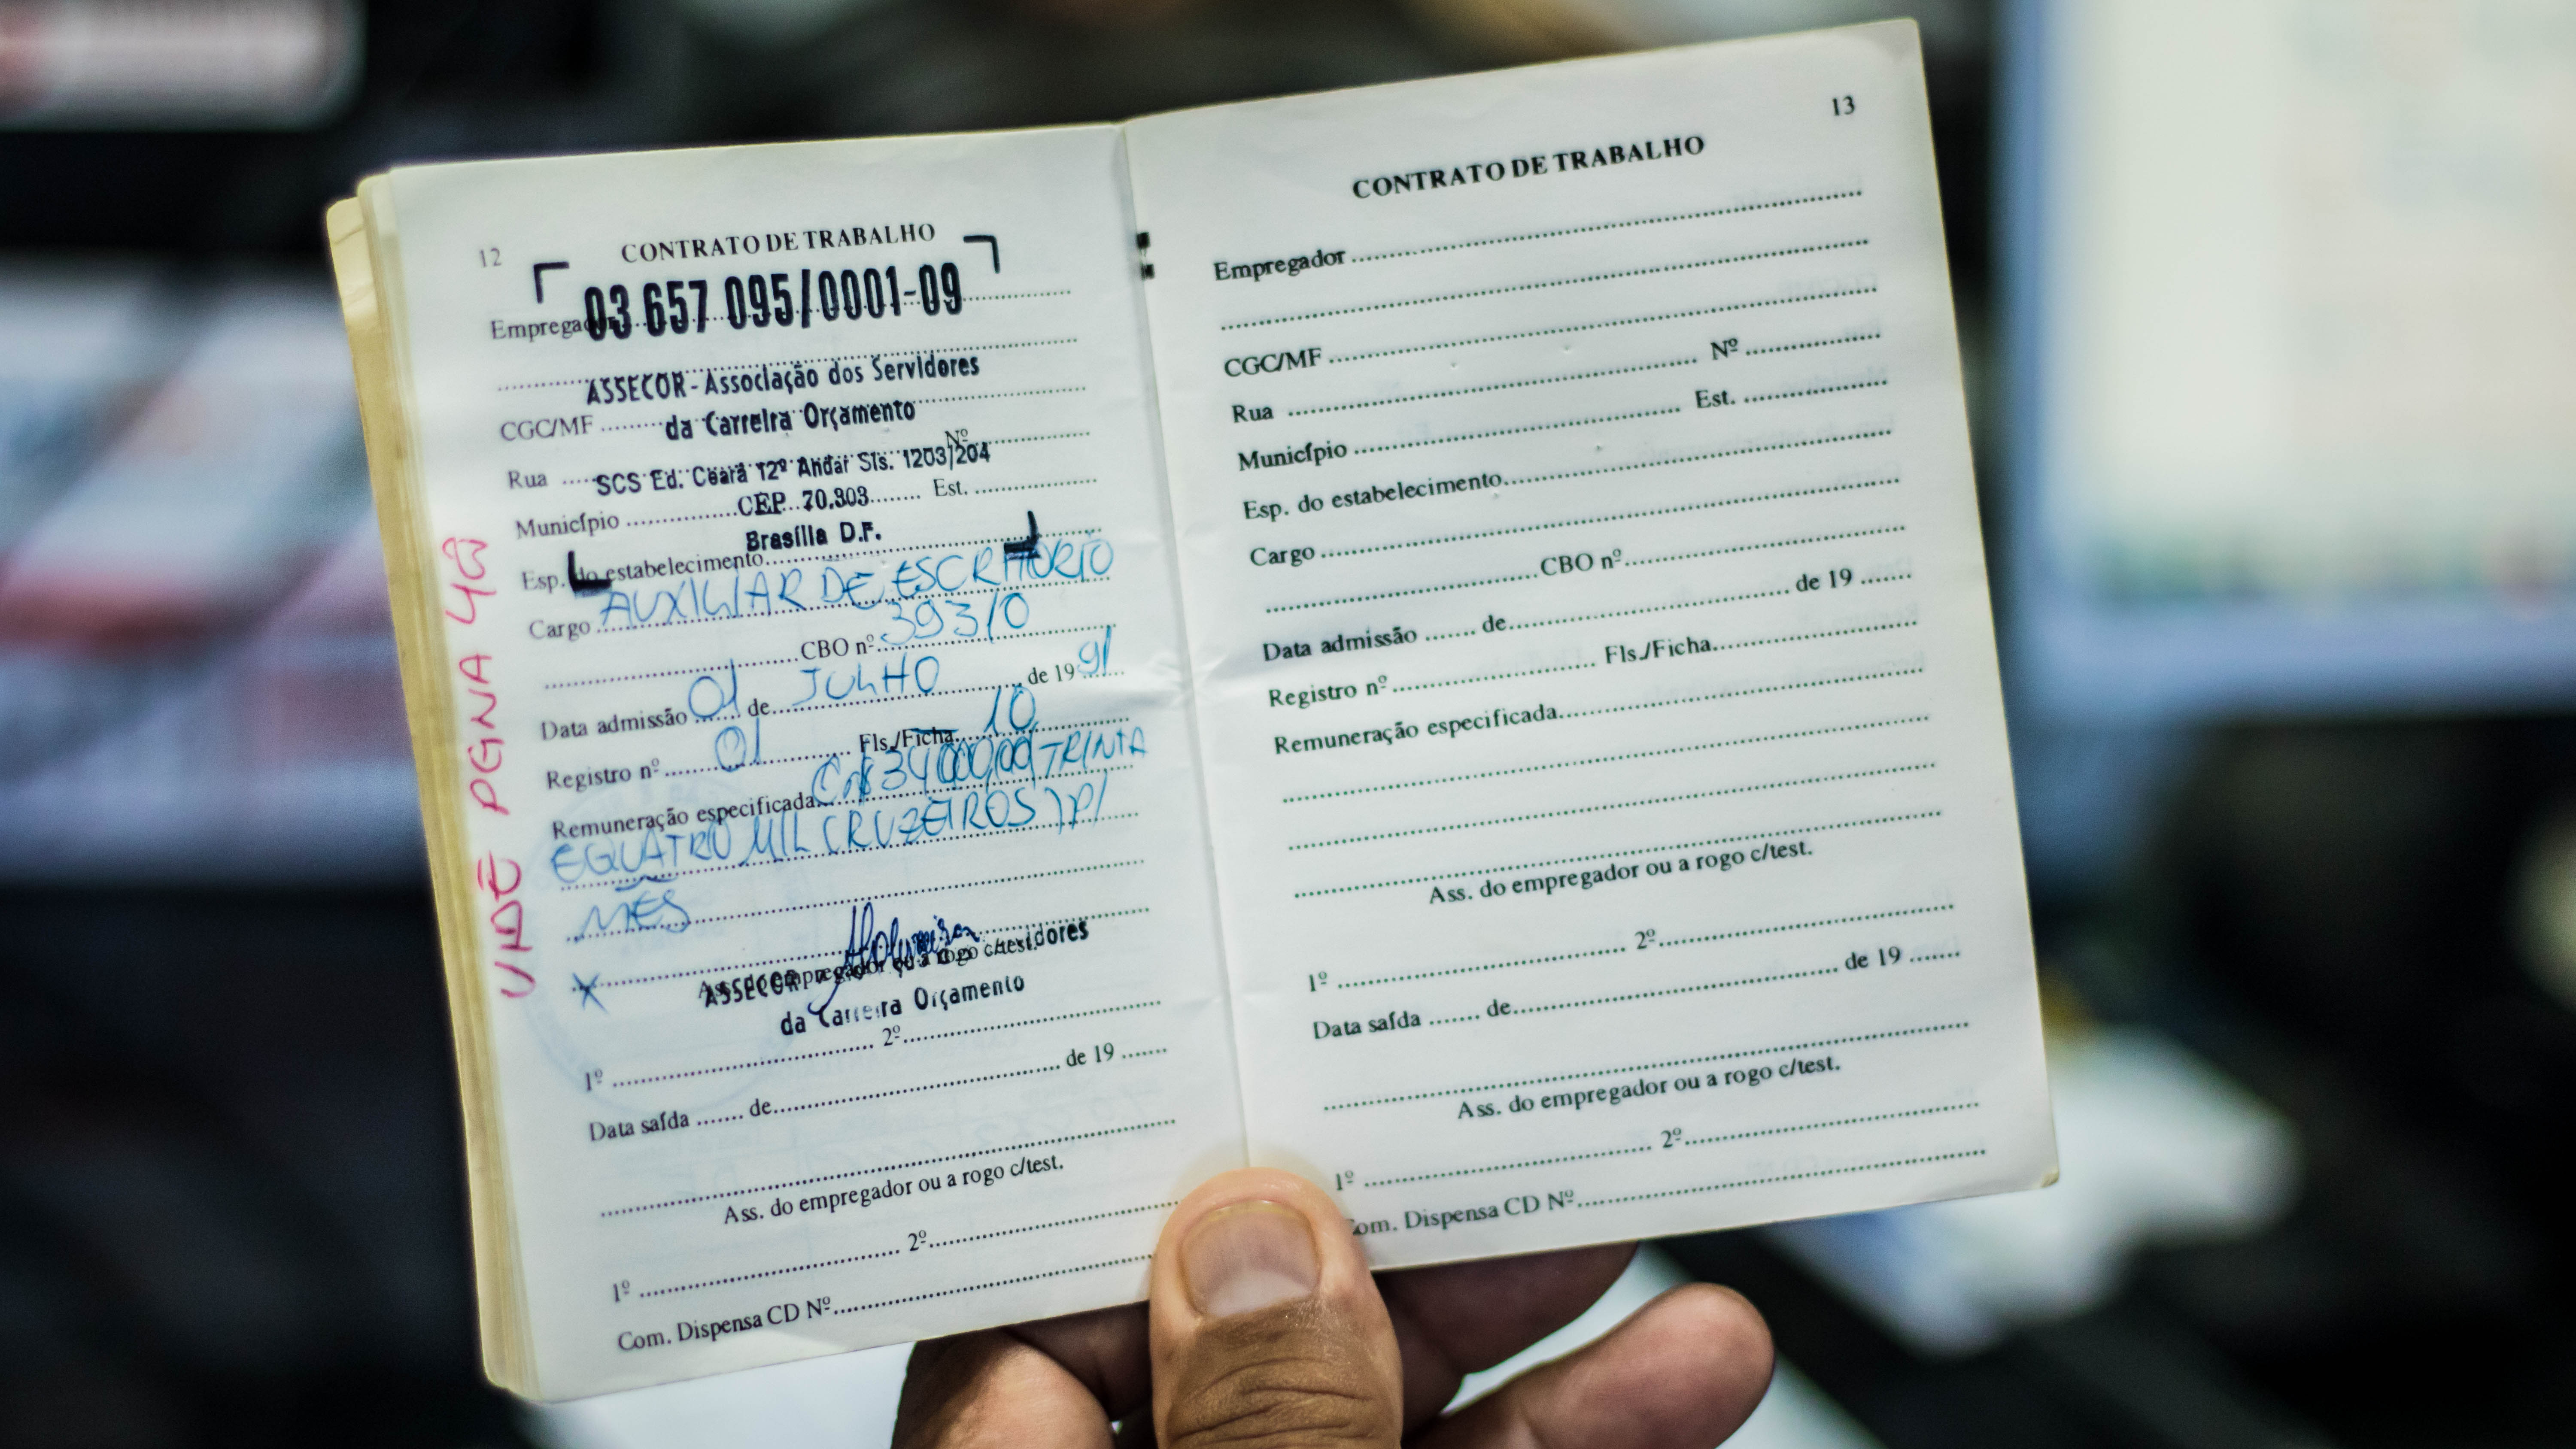 12
CONTRATO DE TRABALHO
03 657 095/0001-09
Empregador
ASSECOR - Associação dos Servidores
CGC/MF da Carreira Orçamento
Nº
Rua SCS Ed. Ceará 12º Andar Sls. 1203/204
Município CEP 70.303 Est.
Brasília D.F.
Esp. do estabelecimento
Cargo AUXILIAR DE ESCRITÓRIO
CBO nº 393/0
Data admissão 01 de JULHO de 19 91
Registro nº 01 Fls./Ficha 10
Remuneração especificada Cr$ 34000,00 TRINTA
E QUATRO MIL CRUZEIROS ) P/
MÊS
Ass. do empregador ou a rogo c/test.
ASSECOR Servidores
da Carreira Orçamento
1º 2º
Data saída de de 19
Ass. do empregador ou a rogo c/test.
1º 2º
Com. Dispensa CD Nº
VIDE PGNA 40
13
CONTRATO DE TRABALHO
Empregador
CGC/MF
Rua Nº
Município Est.
Esp. do estabelecimento
Cargo
CBO nº
Data admissão de de 19
Registro nº Fls./Ficha
Remuneração especificada
Ass. do empregador ou a rogo c/test.
1º 2º
Data saída de de 19
Ass. do empregador ou a rogo c/test.
1º 2º
Com. Dispensa CD Nº